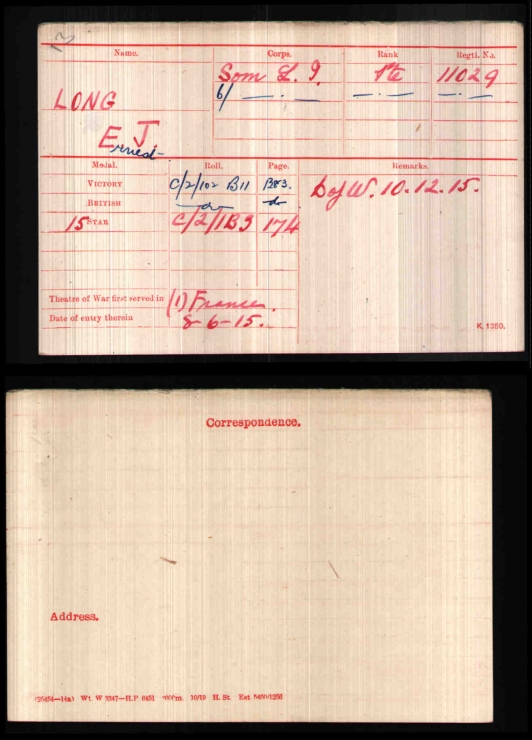 Name. Corps. Rank Regtl. No.
Som L. I. Pte 11029
6/ — . — — . — — . —
LONG
E. J.
Ernest
Medal. Roll. Page. Remarks.
VICTORY C/2/102 B11 B83. D of W. 10.12.15.
BRITISH — do — do
15 STAR C/2/1B3 174
Theatre of War first served in (1) France.
Date of entry therein 8-6-15.
K. 1380.
Correspondence.
Address.
(25454—14a) Wt. W 3347—H.P 6451 10/19 H. St. Est 5450/1256